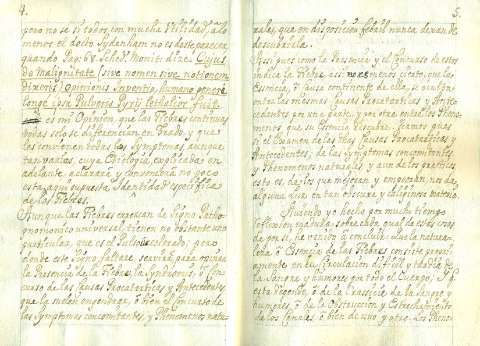 4.
pero no se si todos con mucha utilidad, a lo
menos el docto Sydenham no es de este parecer
quando Pag. 68. Sched. Monit. dize Cujus
do Malignitate (sive nomen sive notionem
dixeris) opinionis inventio, humano generi
longe ipsa Pulveris Pyrii lethalior fuit.
es mi Opinion, que las Fiebres continuas
todas solo se diferencian en Grado, y que
los tienen todas los Symptomas, aunque
tan varios, cuya Ethiologia, explicada en
adelante aclarará y convencerá no poco
esta aqui supuesta Identidad especifica
de las Fiebres.
Aunque las Fiebres carescan de Signo Patho-
gnomonico universal, tienen no obstante uno
particular, que es el Pulso alterado; pero
donde este signo faltare, servirá para opinar
la Presencia de la Fiebre la Syndrome, o Con-
curso de las Causas Procatarticas y Antecedentes
que la suelen engendrar, ó bien el Concurso de
los Symptomas concomitantes, y Phenomenos natu-
5.
rales, que en disposicion febril nunca dexan de
descubrirla.
Assi pues como la Presencia y el Concurso de estos
indica la Fiebre, assi no es menos cierto, que la
Essencia, y Causa continente de ella, se oculta
entre las mismas Causas Procatarticas y Ante-
cedentes por una parte, y por otra entre los Pheno-
menos, que su Essencia descubren. Veamos pues
si el Examen de las tres Causas Procatarticas y
Antecedentes, de los Symptomas concomitantes,
y Phenomenos naturales, y aun de los practicos
esto es, de los que mejoran, y empeoran, nos da
alguna luz en tan obscura y caliginosa materia.
Haviendo yo hecho por mucho tiempo
reflexion madura, sobre cada qual de estas cosas
de por si, he venido á concluir, que la natura-
leza, ó Essencia de las Fiebres consiste proxi-
mamente en la Circulacion difficultada de
la Sangre, y humores por todo el Cuerpo; y q.
esta depende, ó de la Crassicie de la Sangre y
humores, ó de la Obstruccion y Estrechamiento
de los Canales, ó bien de uno y otro. Los Pheno-